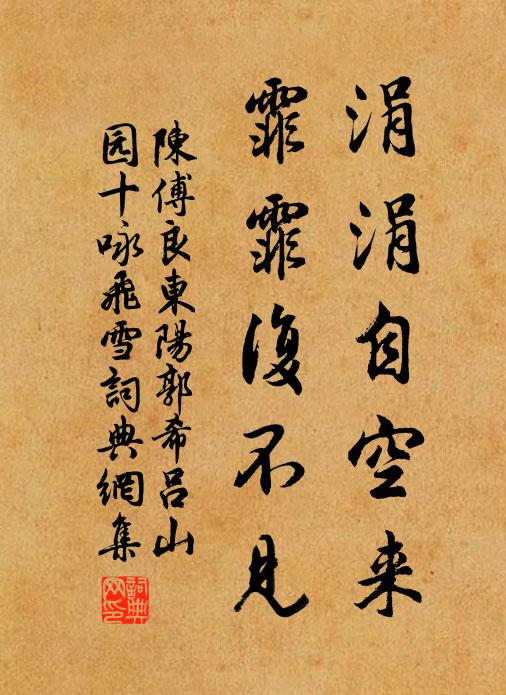 涓涓自空来
霏霏復不見
陳傅良東陽郭希呂山
园十咏飛雪詞典網集
詞典網印